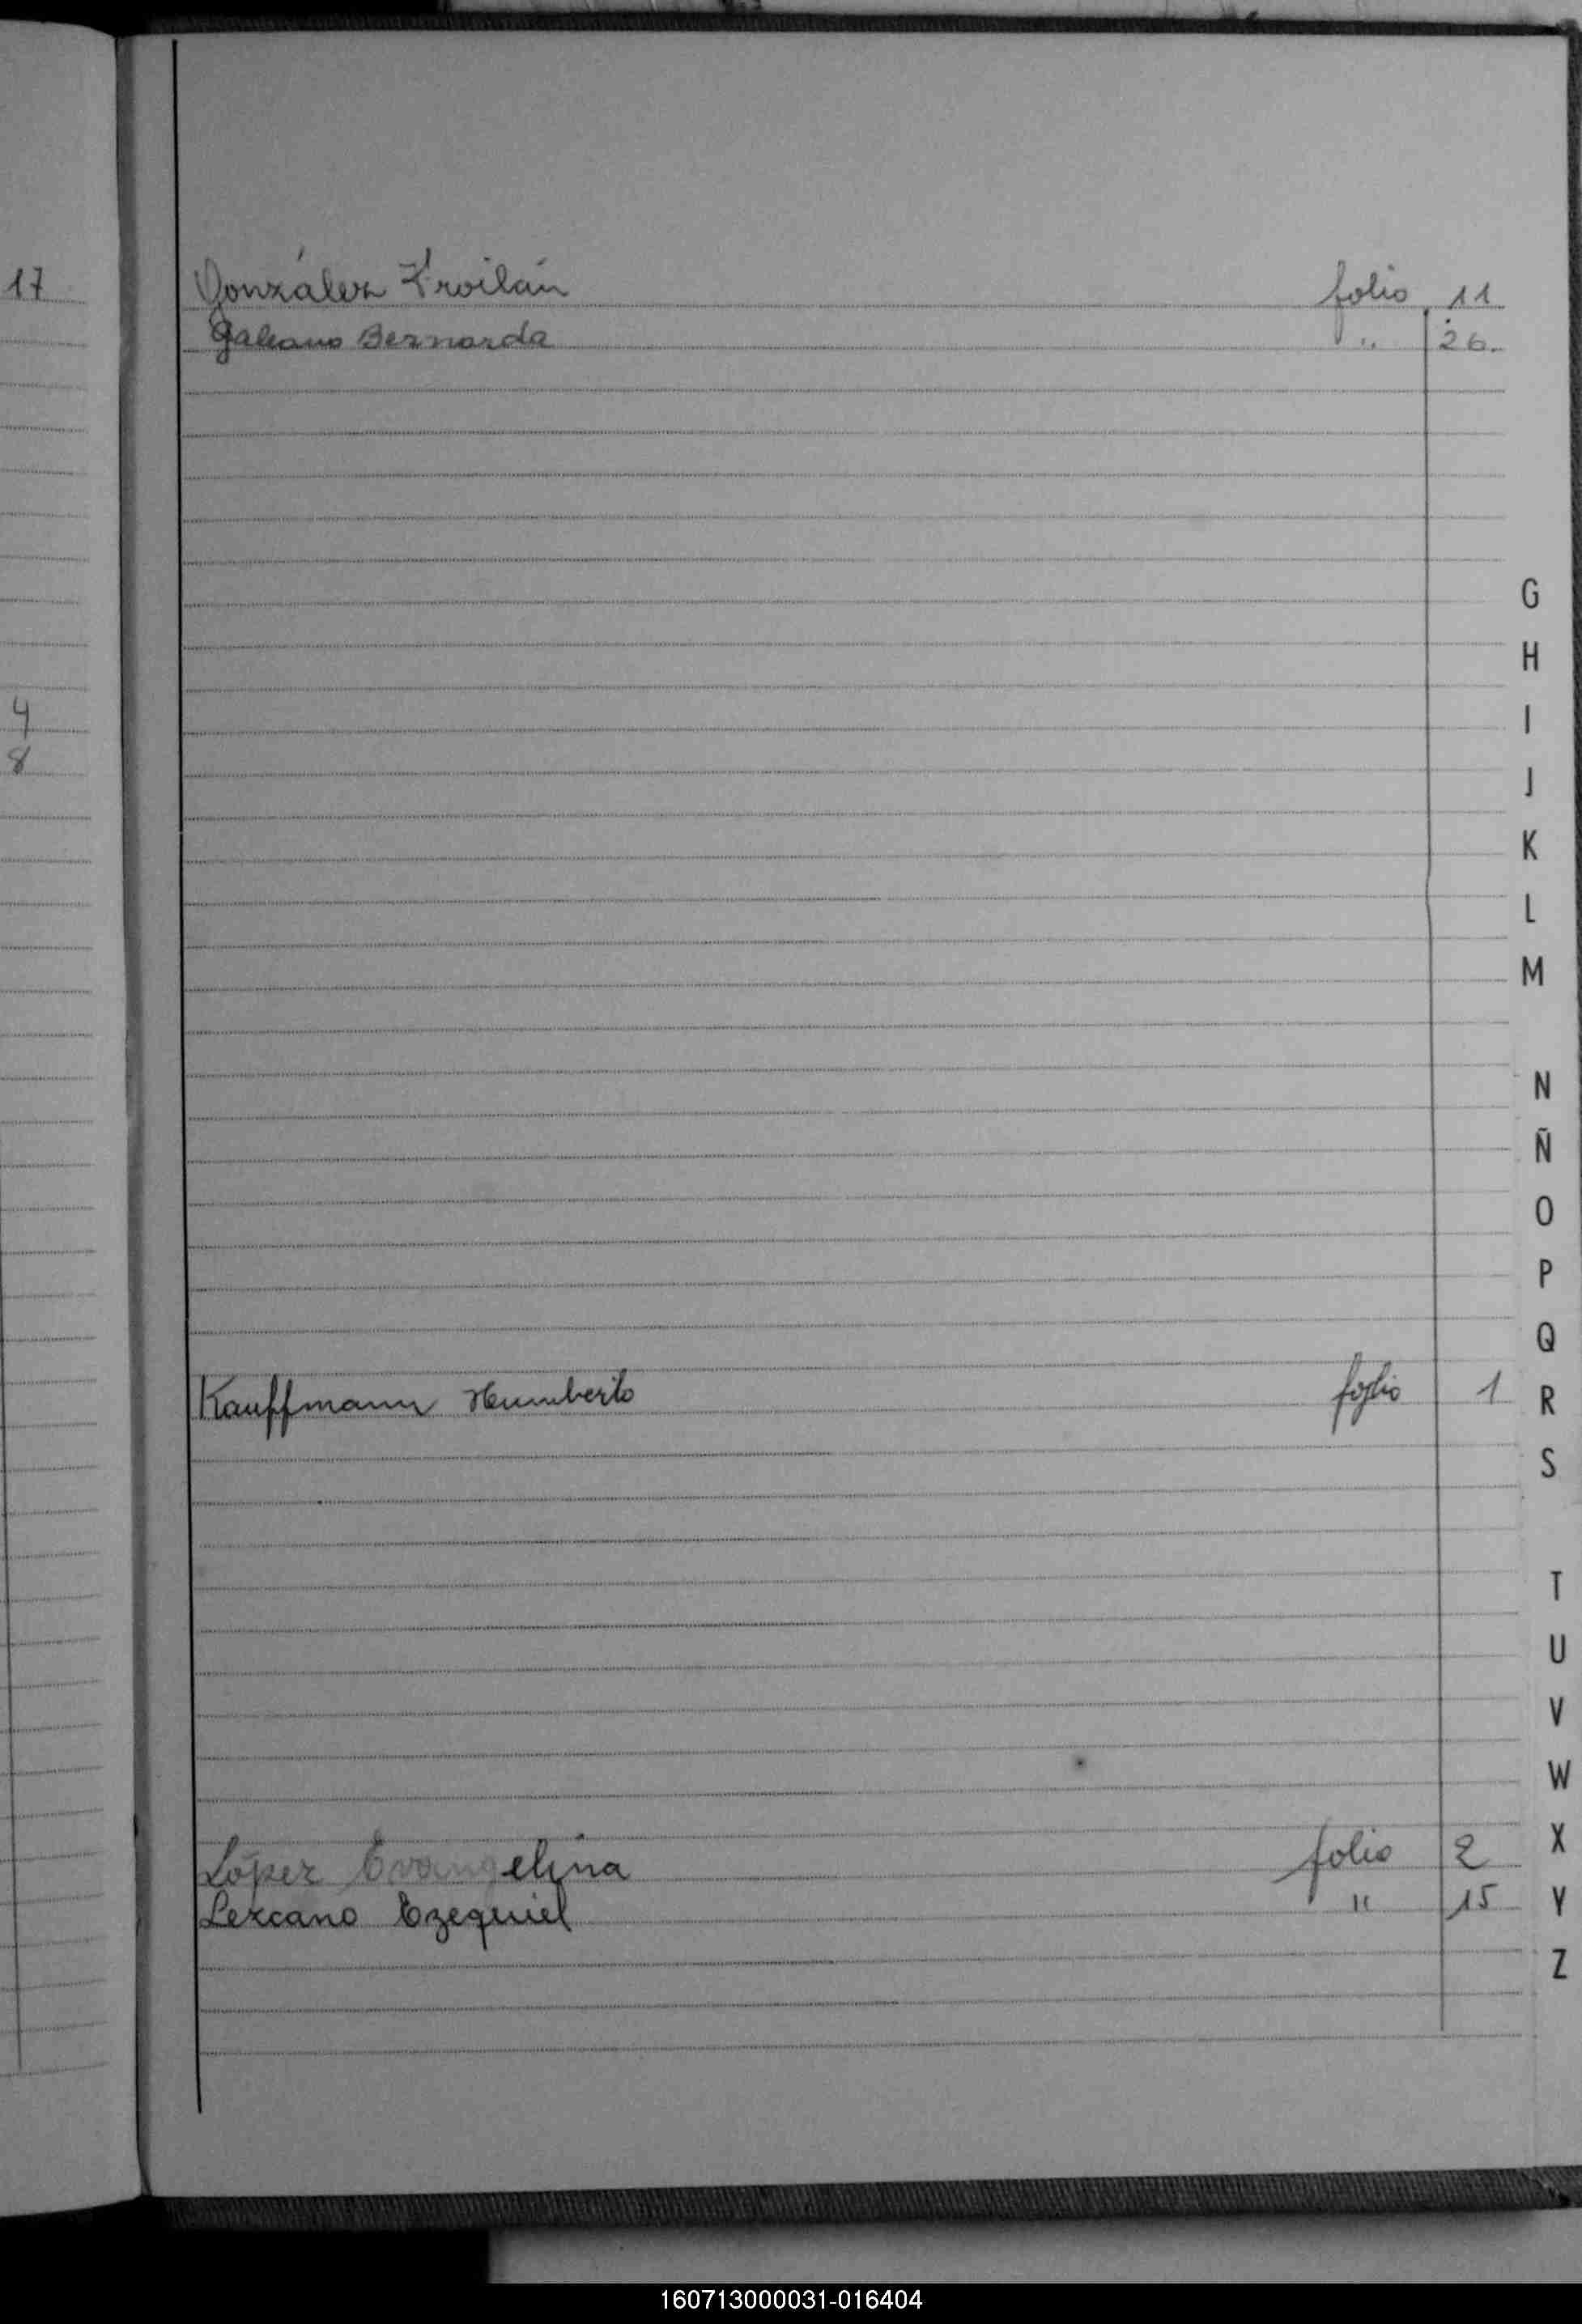 17
4
8
González Froilán folio 11
Galeano Bernarda " 26.
Kauffmann Humberto folio 1
López Evangelina folio 2
Lezcano Ezequiel " 15
G
H
I
J
K
L
M
N
Ñ
O
P
Q
R
S
T
U
V
W
X
Y
Z
160713000031-016404